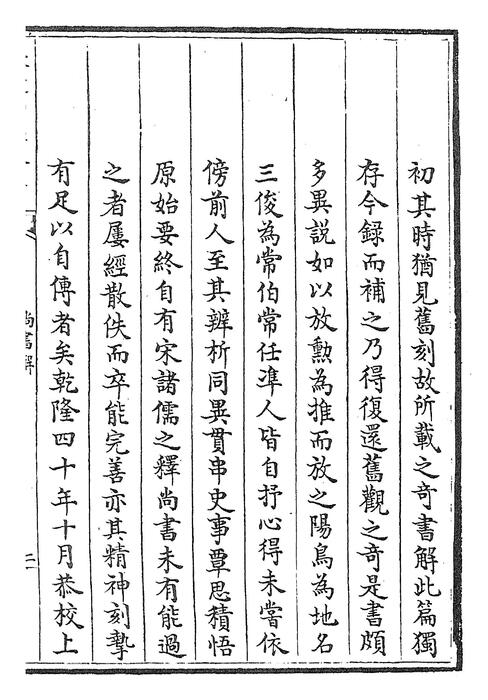 初其時猶見舊刻故所載之奇書解此篇獨
存今録而補之乃得復還舊觀之奇是書頗
多異説如以放勲為推而放之陽鳥為地名
三俊為常伯常任凖人皆自抒心得未嘗依
傍前人至其辨析同異貫串史事覃思積悟
原始要終自有宋諸儒之釋尚書未有能過
之者屢經散佚而卒能完善亦其精神刻摯
有足以自傳者矣乾隆四十年十月恭校上
尚書解
二